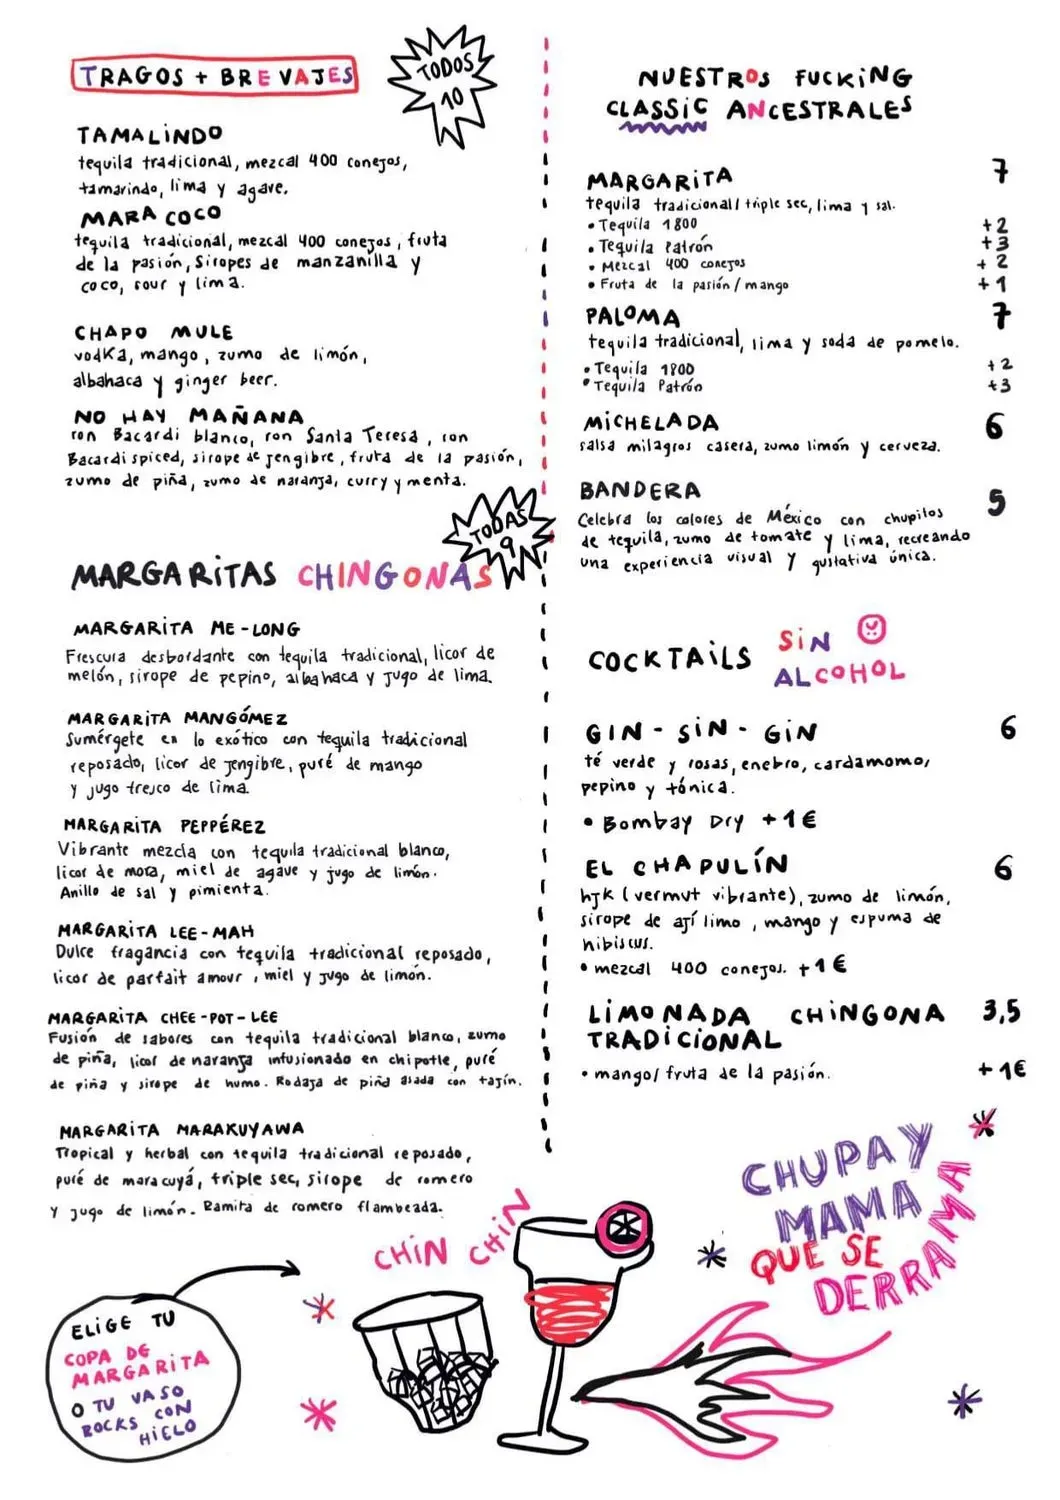 TRAGOS + BREVAJES
TODOS
10
TAMALINDO
tequila tradicional, mezcal 400 conejos,
tamarindo, lima y agave.
MARA COCO
tequila tradicional, mezcal 400 conejos, fruta
de la pasión, Siropes de manzanilla y
coco, sour y lima.
CHAPO MULE
vodka, mango, zumo de limón,
albahaca y ginger beer.
NO HAY MAÑANA
ron Bacardi blanco, ron Santa Teresa, ron
Bacardi spiced, sirope de jengibre, fruta de la pasión,
zumo de piña, zumo de naranja, curry y menta.
TODAS
9
MARGARITAS CHINGONAS
MARGARITA ME-LONG
Frescura desbordante con tequila tradicional, licor de
melón, sirope de pepino, albahaca y jugo de lima.
MARGARITA MANGÓMEZ
Sumérgete en lo exótico con tequila tradicional
reposado, licor de jengibre, puré de mango
y jugo fresco de lima.
MARGARITA PEPPÉREZ
Vibrante mezcla con tequila tradicional blanco,
licor de mora, miel de agave y jugo de limón.
Anillo de sal y pimienta.
MARGARITA LEE-MAH
Dulce fragancia con tequila tradicional reposado,
licor de parfait amour, miel y jugo de limón.
MARGARITA CHEE-POT-LEE
Fusión de sabores con tequila tradicional blanco, zumo
de piña, licor de naranja infusionado en chipotle, puré
de piña y sirope de humo. Rodaja de piña asada con tajín.
MARGARITA MARAKUYAWA
Tropical y herbal con tequila tradicional reposado,
puré de maracuyá, triple sec, sirope de romero
y jugo de limón. Ramita de romero flambeada.
ELIGE TU
COPA DE
MARGARITA
O TU VASO
ROCKS CON
HIELO
NUESTROS FUCKING
CLASSIC ANCESTRALES
MARGARITA 7
tequila tradicional/ triple sec, lima y sal.
• Tequila 1800 +2
• Tequila Patrón +3
• Mezcal 400 conejos +2
• Fruta de la pasión/mango +1
PALOMA 7
tequila tradicional, lima y soda de pomelo.
• Tequila 1800 +2
• Tequila Patrón +3
MICHELADA 6
salsa milagros casera, zumo limón y cerveza.
BANDERA 5
Celebra los colores de México con chupitos
de tequila, zumo de tomate y lima, recreando
una experiencia visual y gustativa única.
COCKTAILS SIN
ALCOHOL
GIN-SIN-GIN 6
té verde y rosas, enebro, cardamomo,
pepino y tónica.
• Bombay Dry +1€
EL CHAPULÍN 6
hjk (vermut vibrante), zumo de limón,
sirope de ají limo, mango y espuma de
hibiscus.
• mezcal 400 conejos. +1€
LIMONADA CHINGONA 3,5
TRADICIONAL
• mango/ fruta de la pasión. +1€
CHIN CHIN
CHUPA Y
MAMA
QUE SE
DERRAMA